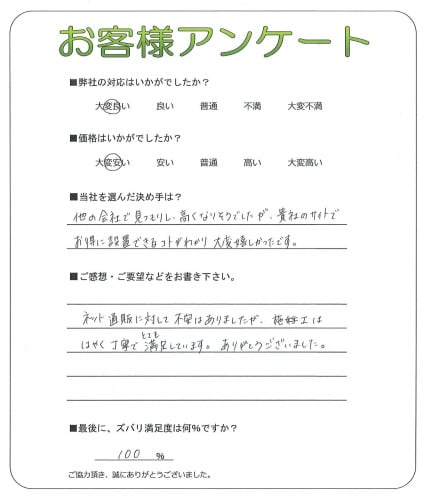 お客様アンケート
■弊社の対応はいかがでしたか?
大変良い 良い 普通 不満 大変不満
■価格はいかがでしたか?
大変安い 安い 普通 高い 大変高い
■当社を選んだ決め手は?
他の会社で見つもりし、高くなりそうでしたが、貴社のサイトで
お得に設置できるコトがわかり大変嬉しかったです。
■ご感想・ご要望などをお書き下さい。
ネット通販に対して不安はありましたが、施工は
とても
はやく丁寧で満足しています。ありがとうございました。
■最後に、ズバリ満足度は何%ですか?
100 %
ご協力頂き、誠にありがとうございました。